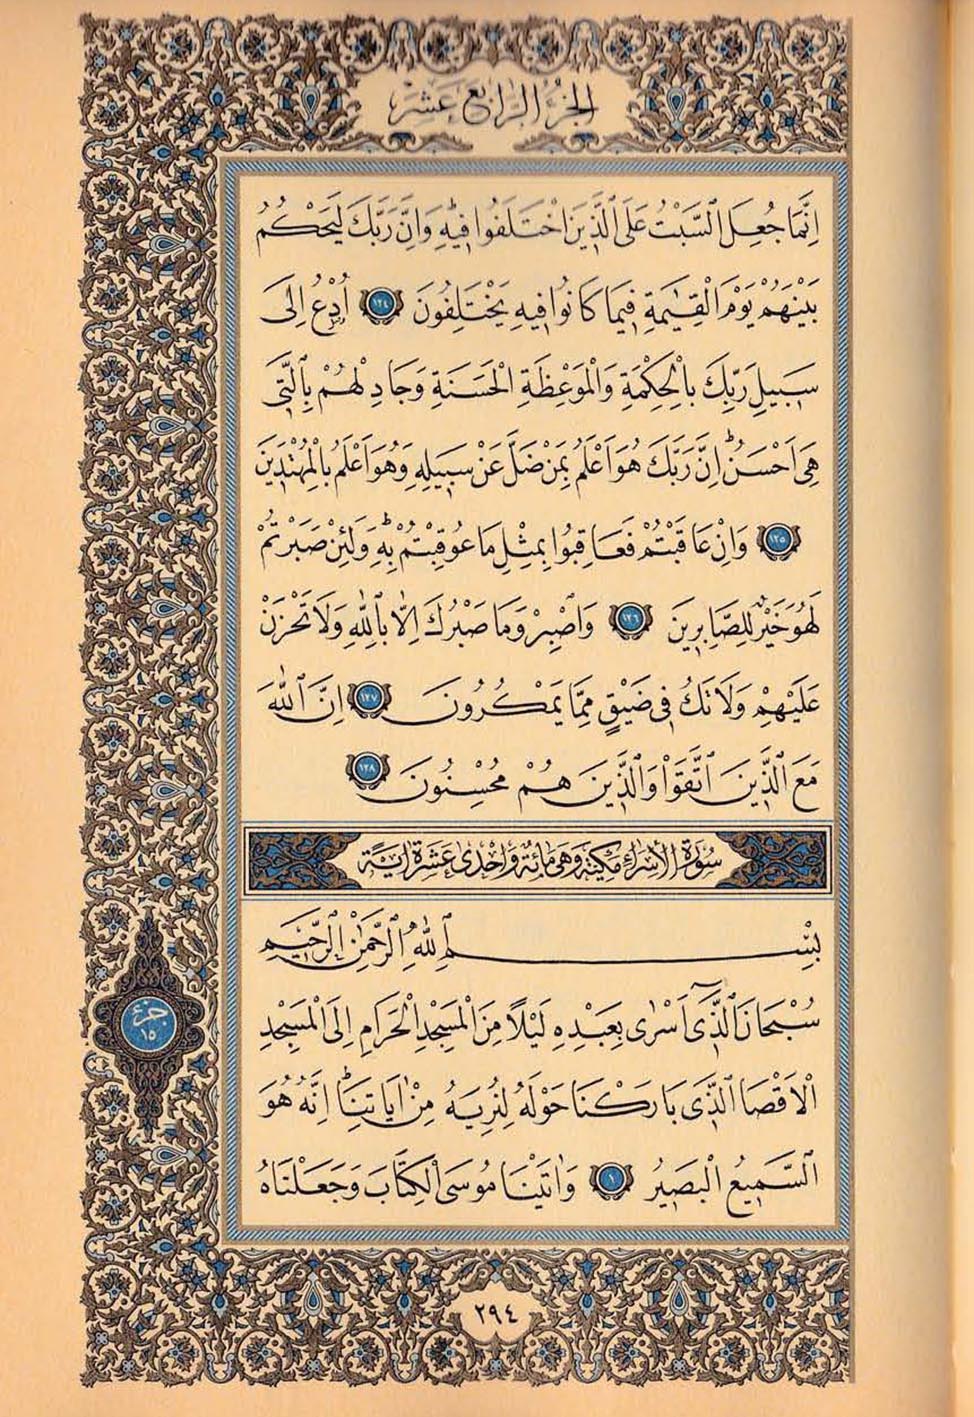 الجزء الرابع عشر
اِنَّمَا جُعِلَ السَّبْتُ عَلَى الَّذ۪ينَ اخْتَلَفُوا ف۪يهِۜ وَاِنَّ رَبَّكَ لَيَحْكُمُ
بَيْنَهُمْ يَوْمَ الْقِيٰمَةِ ف۪يمَا كَانُوا ف۪يهِ يَخْتَلِفُونَ ١٢٤ اُدْعُ اِلٰى
سَب۪يلِ رَبِّكَ بِالْحِكْمَةِ وَالْمَوْعِظَةِ الْحَسَنَةِ وَجَادِلْهُمْ بِالَّت۪ى
هِىَ اَحْسَنُۜ اِنَّ رَبَّكَ هُوَ اَعْلَمُ بِمَنْ ضَلَّ عَنْ سَب۪يلِه۪ وَهُوَ اَعْلَمُ بِالْمُهْتَد۪ينَ
١٢٥ وَاِنْ عَاقَبْتُمْ فَعَاقِبُوا بِمِثْلِ مَا عُوقِبْتُمْ بِه۪ۜ وَلَئِنْ صَبَرْتُمْ
لَهُوَ خَيْرٌ لِلصَّابِر۪ينَ ١٢٦ وَاصْبِرْ وَمَا صَبْرُكَ اِلَّا بِاللّٰهِ وَلَا تَحْزَنْ
عَلَيْهِمْ وَلَا تَكُ ف۪ى ضَيْقٍ مِمَّا يَمْكُرُونَ ١٢٧ اِنَّ اللّٰهَ
مَعَ الَّذ۪ينَ اتَّقَوْا وَالَّذ۪ينَ هُمْ مُحْسِنُونَ ١٢٨
سُورَةُ الْاِسْرَاءِ مَكِّيَّةٌ وَهِىَ مِائَةٌ وَاِحْدٰى عَشْرَةَ اٰيَةً
بِسْمِ اللّٰهِ الرَّحْمٰنِ الرَّح۪يمِ
سُبْحَانَ الَّذ۪ٓى اَسْرٰى بِعَبْدِه۪ لَيْلًا مِنَ الْمَسْجِدِ الْحَرَامِ اِلَى الْمَسْجِدِ
الْاَقْصَا الَّذ۪ى بَارَكْنَا حَوْلَهُ لِنُرِيَهُ مِنْ اٰيَاتِنَاۜ اِنَّهُ هُوَ
السَّم۪يعُ الْبَص۪يرُ ١ وَاٰتَيْنَا مُوسَى الْكِتَابَ وَجَعَلْنَاهُ
جزء
١٥
٢٩٤